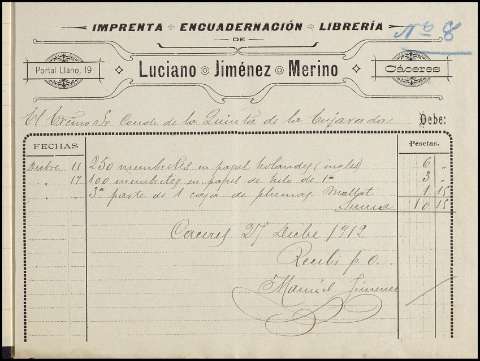 IMPRENTA ENCUADERNACIÓN LIBRERÍA
Nº 8
DE
Portal Llano, 19
Luciano Jiménez Merino
Cáceres
El Excmo Sr. Conde de la Quinta de la Enjarada Debe:
FECHAS
Pesetas.
Dicbre 11 250 membretes en papel holandes (ingles) 6 "
" 17 100 membretes en papel de hilo de 1ª 3 "
3ª parte de 1 caja de plumas Mallat 1 15
Suma 10 15
Caceres 27 Dicbre 1912
Recibí p o.
Manuel Jimenez